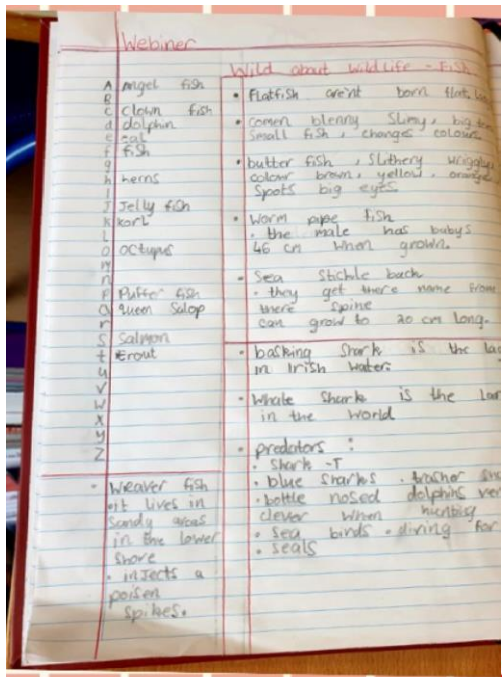 Webiner
Wild about wildlife - Fish
A Angel fish
B
C clown fish
d dolphin
e eal
f fish
g
h herns
i
J Jelly fish
K korl
l
O octupus
m
n
P Puffer fish
Q Queen Salop
r
S Salmon
t trout
u
V
W
X
y
Z
• Weaver fish
• it lives in
Sandy areas
in the lower
Shore
• injects a
poisen
Spikes.
• Flatfish are'nt born flat,
• comen blenny Slimy, big
Small fish, changes colour
• butter fish, Slithery
colour brown, yellow, orange
Spots big eyes
• Worm pipe fish
• the male has babys
46 cm when grown.
• Sea Stickle back
• they get there name from
there spine
can grow to 20 cm long.
• basking Shark is the
in Irish water.
• Whale Shark is the
in the world
• predators :
• Shark -T
• blue Sharks • trasher
• bottle nosed dolphins
clever when
• Sea birds • diving for
• Seals